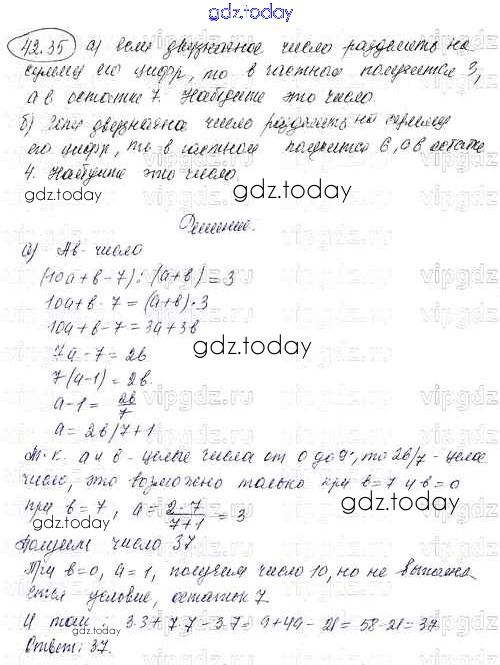 gdz.today
42.35 а) если двузначное число разделить на
сумму его цифр, то в частном получается 3,
а в остатке 7. Найдите это число.
б) Если двузначно число разделить на сумму
его цифр, то в частном получится 6, а в остатке
4. Найдите это число.
gdz.today
gdz.today
Решение.
а) Ав- число
(10а+в-7):(а+в)=3
gdz.today
10а+в-7=(а+в)·3
10а+в-7=3а+3в
7а-7=2в
gdz.today
7(а-1)=2в.
а-1=2в/7
а=2в/7+1
т.к. а и в - целые числа от 0 до 9, то 2в/7 - целое
число, это возможно только при в=7 и в=0
при в=7, а=2·7/7+1=3
gdz.today
Получаем число 37
При в=0, а=1, получим число 10, но не выполня-
ется условие, остаток 7.
И так: 3·3+7·7-3·7=9+49-21=58-21=37
Ответ: 37.
gdz.today